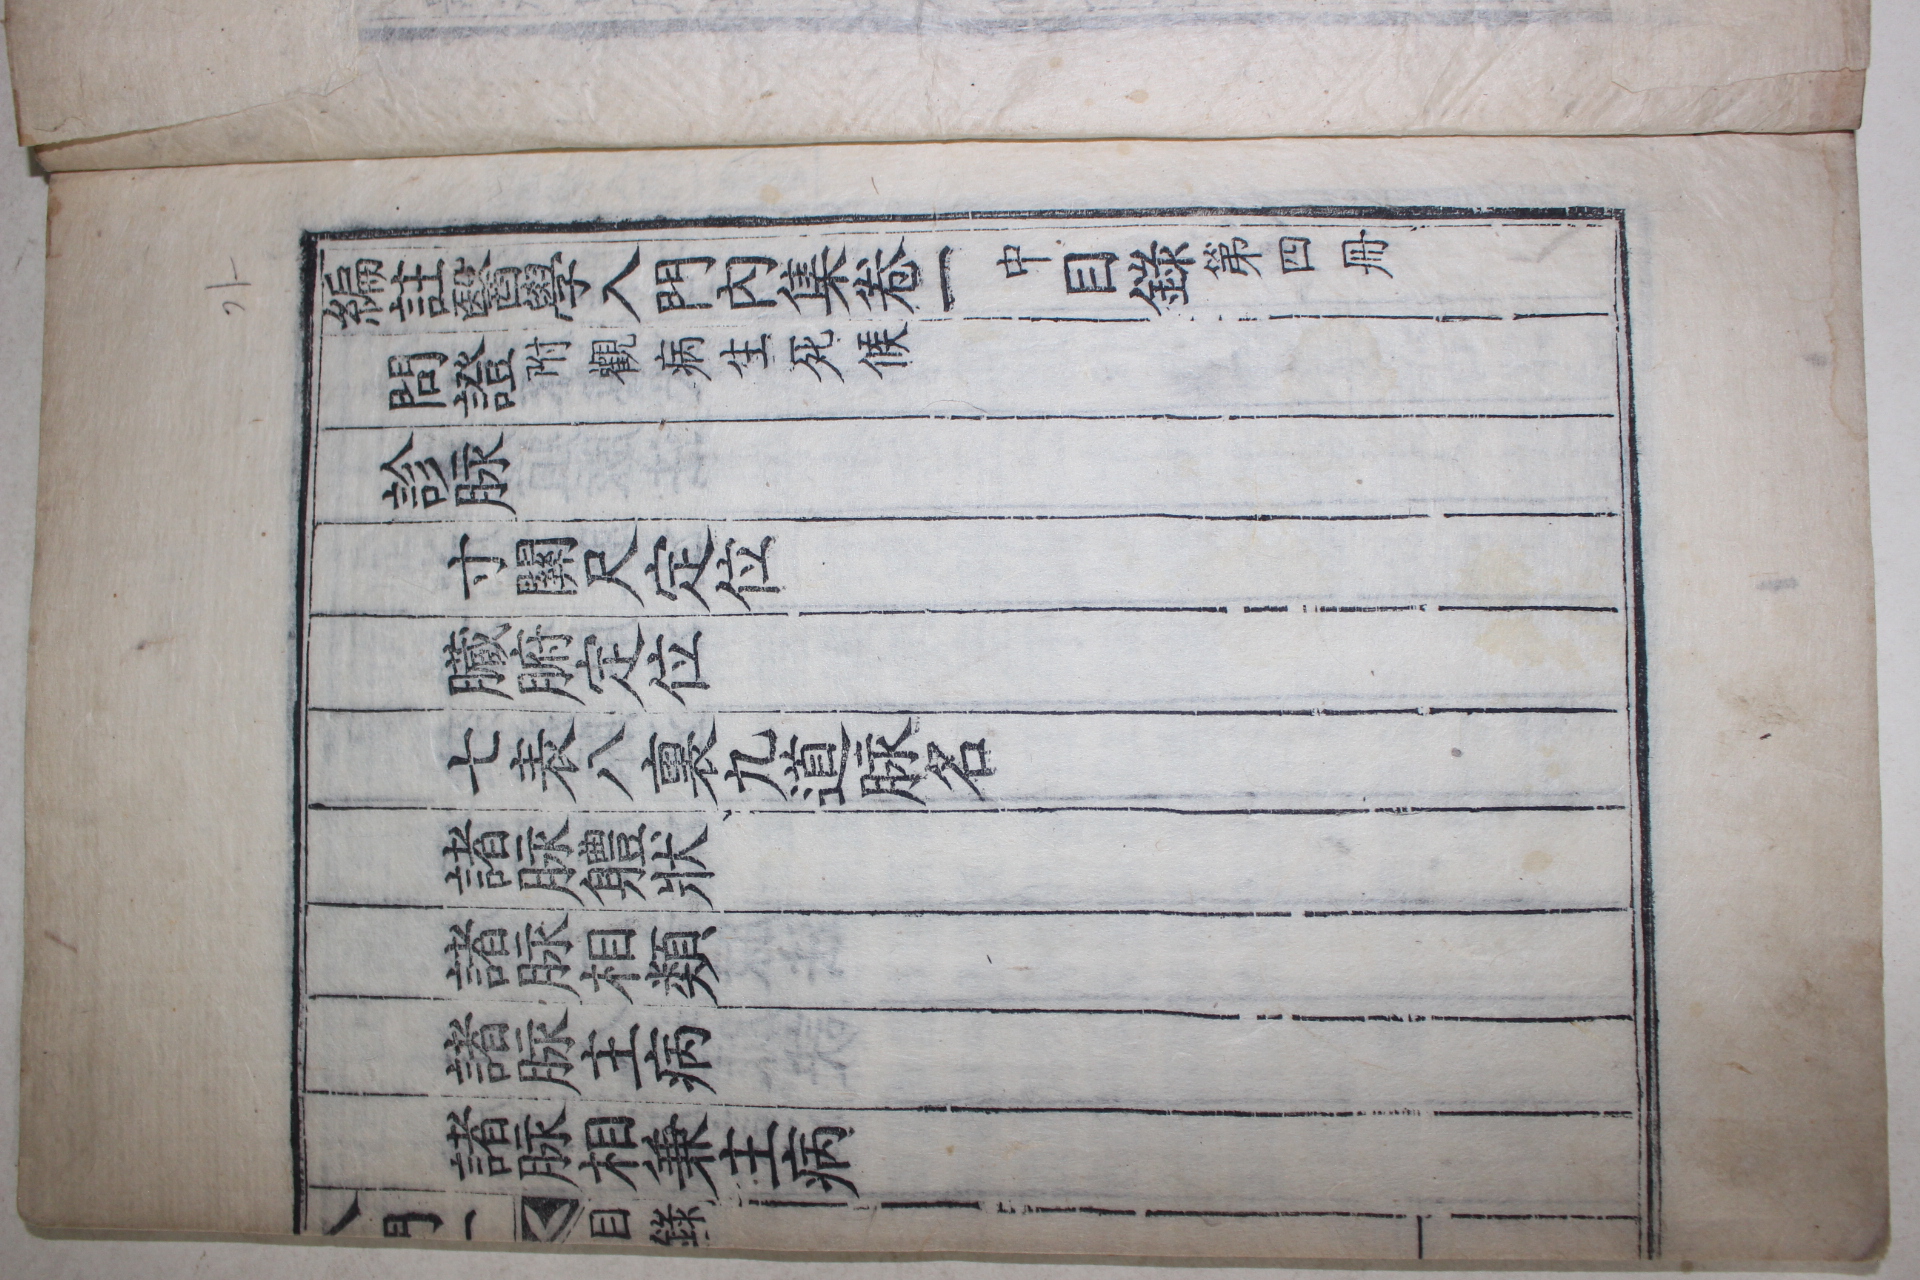 編註醫學入門內集卷一 中 目錄 第四冊
問證 附觀病生死候
診脉
寸關尺定位
臟腑定位
七表八裏九道脉名
諸脉軆狀
諸脉相類
諸脉主病
諸脉相兼主病
入門一 目錄